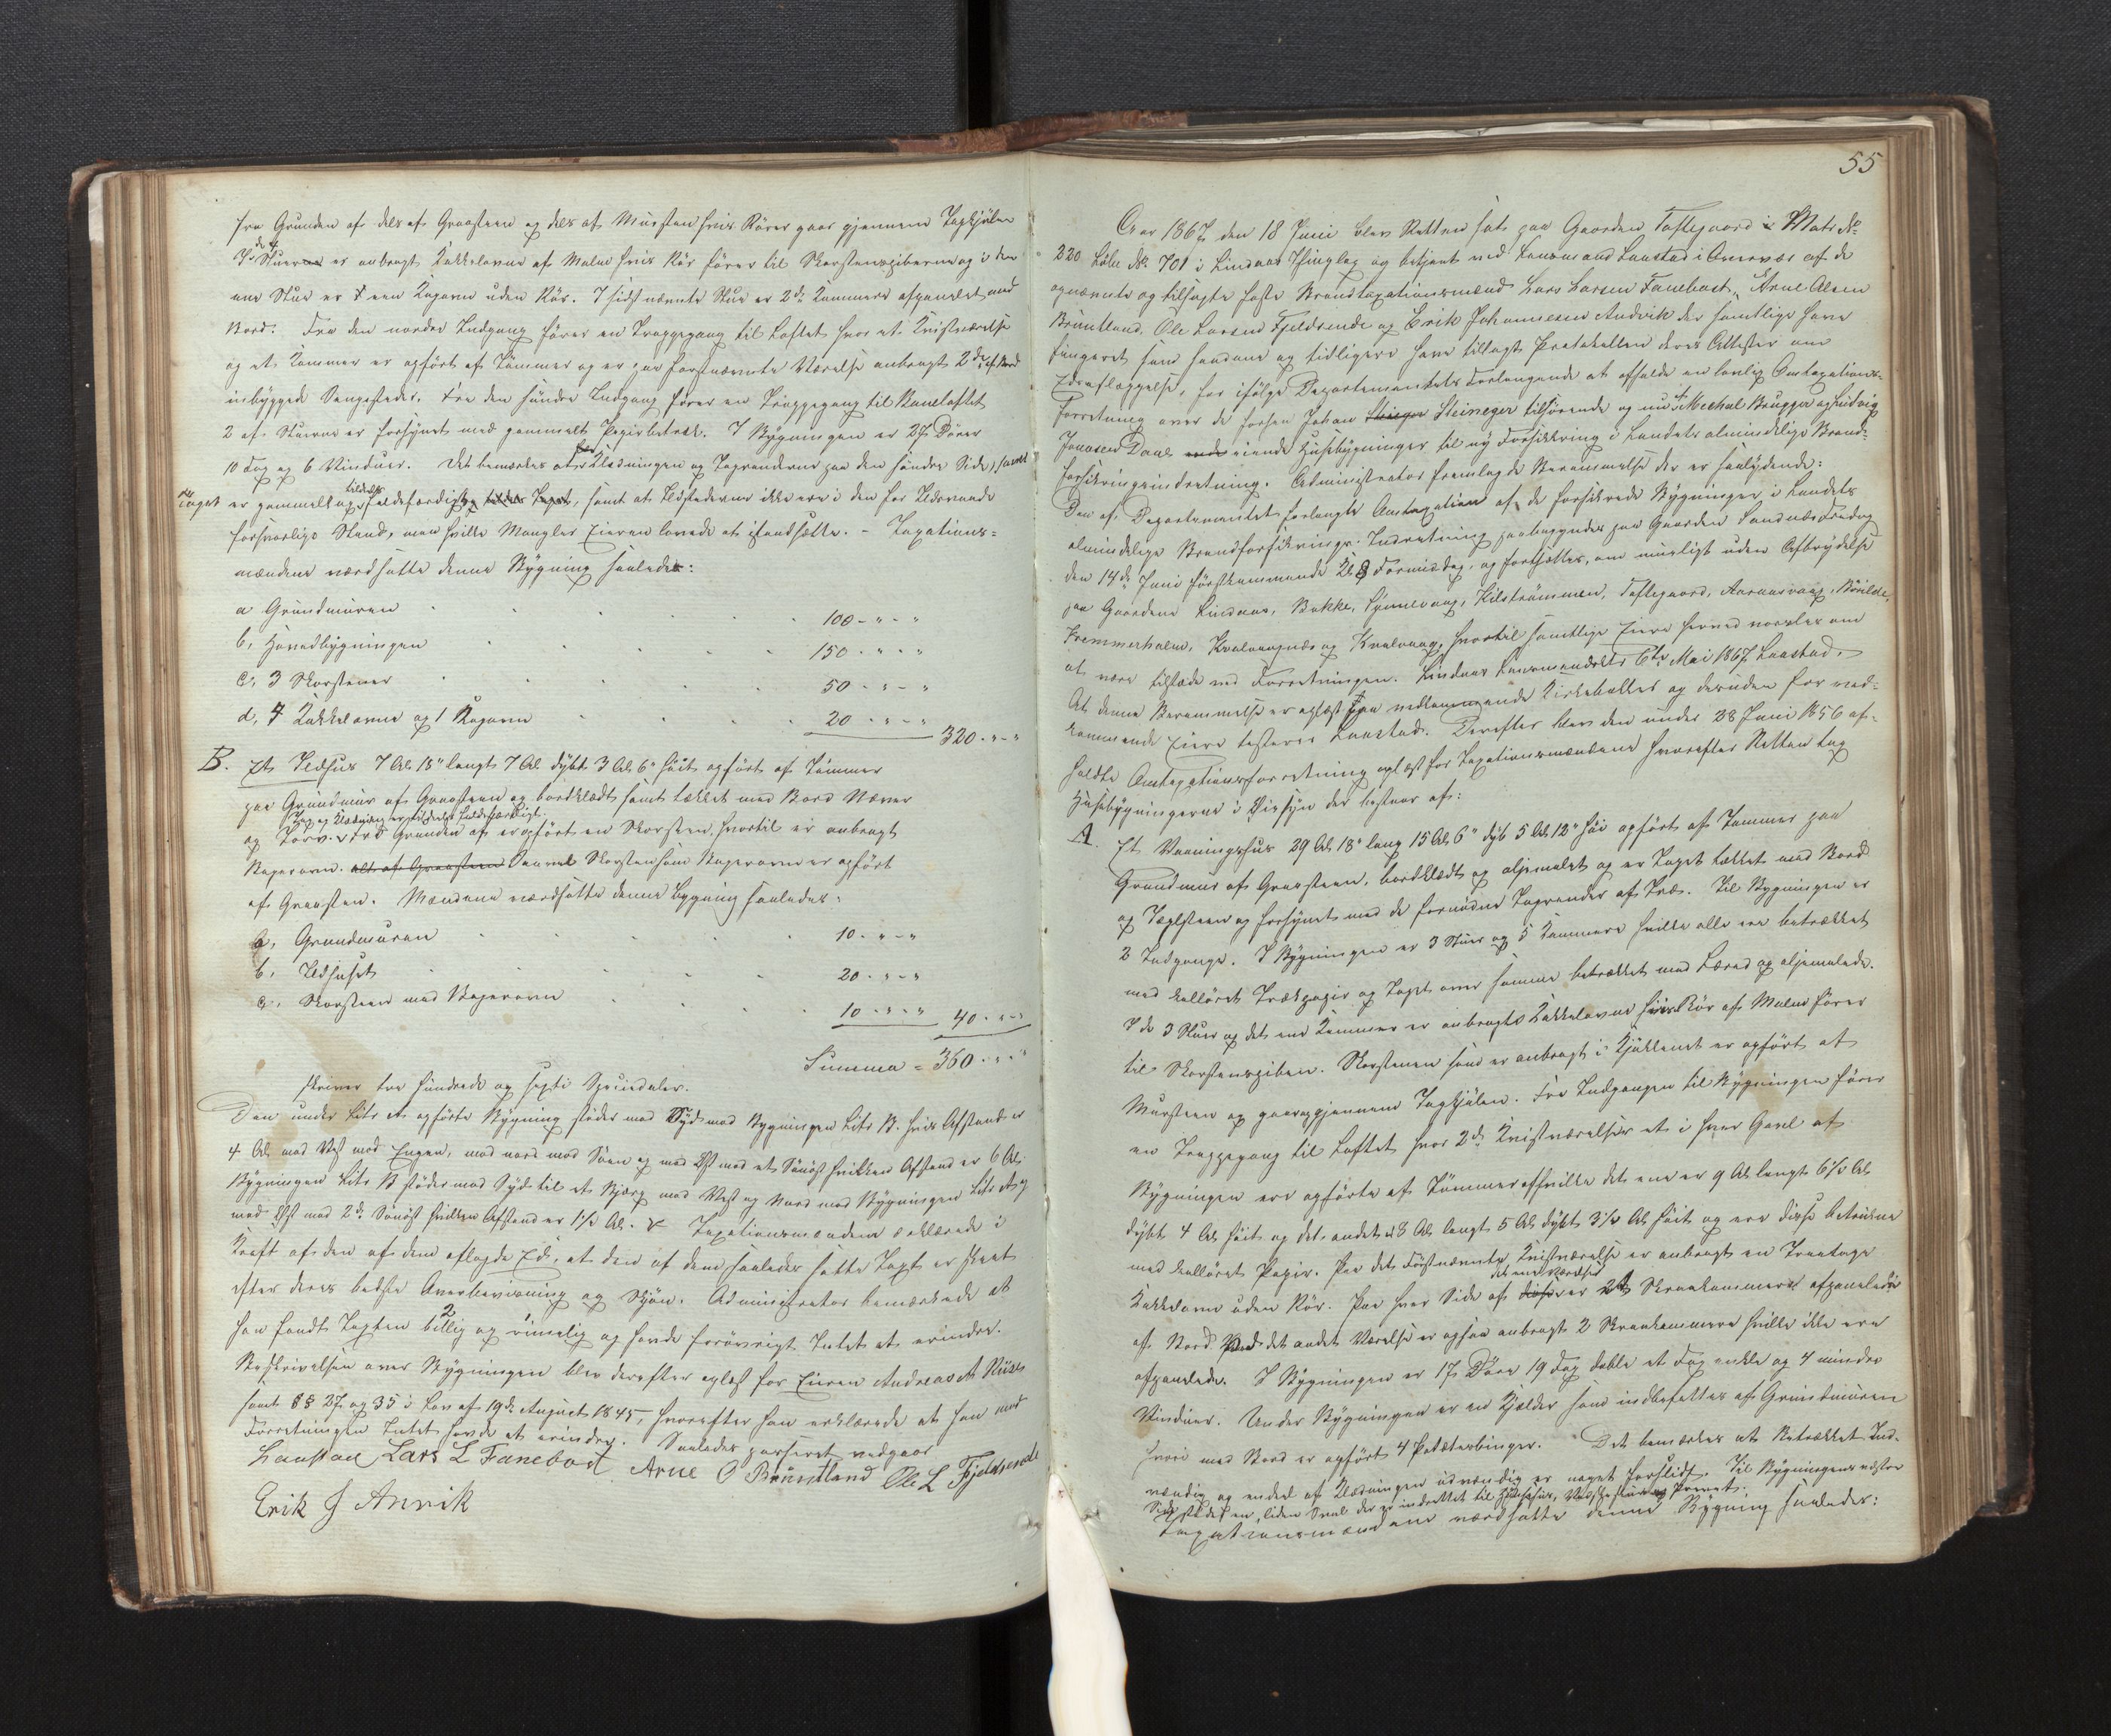 fra Grunden af dels af Graasteen og dels af Mursteen hvis Rører gaar gjennem Tagkjølen
I de 4 Stuer er anbragt Kakkelovne af Malm hvis Rør fører til Skorstenspiberne og i den
ene Stue er en Kogovn uden Rør. I sidst nævnte Stue er 2de Kammere afpanelet med
Bord. Fra den nordre Indgang fører en Trappegang til Loftet hvor et Kvistværelse
og et Kammer er opført af Tømmer og er paa førstnævnte Værelse anbragt 2de af Bord
indbyggede Sengesteder. Fra den søndre Indgang fører en Trappegang til Staneloftet
2 af Stuerne er forsynet med gammelt Papirbetræk. I Bygningen er 27 Døre
10 Fag og 6 Vinduer. Det bemærkes at Bordklædningen og Tagrenderne paa den søndre Side, samt
Taget er gammelt og tildels faldefærdigt, samt at Ildstederne ikke ere i den for Ildsvaade
forsvarlige Stand, men hvilke Mangler Eieren lovede at istandsætte. - Taxations-
mændene værdsatte denne Bygning saaledes:
a Grundmuren 100 - " - "
b, Hovedbygningen 150 - " - "
c, 3 Skorstene 50 - " - "
d, 4 Kakkelovne og 1 Kogovn 20 - " - " 320 - " - "
B. Et Ildhus 7 Al. 18" langt 7 Al. dybt 3 Al. 6" høit opført af Tømmer
paa Grundmur af Graasteen og bordklædt samt tækket med Bord Næver
Tag og Klædning er tildeels faldefærdigt.
og Torv. Fra Grunden af er opført en Skorsteen, hvortil er anbragt
Bagerovn. alt af Graasteen Saavel Skorsten som Bagerovn er opført
af Graasten. Mændene værdsatte denne Bygning saaledes:
a, Grundmuren 10 - " - "
b, Ildhuset 20 - " - "
c, Skorsteen med Bagerovn 10 - " - " 40 - " - "
Summa = 360 - " - "
skriver tre hundrede og sexti Speciedaler.
Den under Litr A opførte Bygning støder mod Syd mod Bygningen Litr B. hvis Afstand er
4 Al. mod Vest mod Engen, mod nord mod Søen og mod Øst mod et Sønøst hvilken Afstand er 6 Al.
Bygningen Litr B støder mod Syd til et Bjerg mod Vest og Nord mod Bygningen Litr A og
mod Øst mod 2de Sønøst hvilken Afstand er 1½ Al. Taxationsmændene erklærede i
Kraft af den af dem aflagde Ed, at den af dem saaledes satte Taxt er skeet
efter deres bedste Overbeviisning og Skjøn. Administrator bemærkede at
han fandt Taxten billig og rimelig og havde forøvrigt Intet at erindre.
Beskrivelsen over Bygningen blev derefter oplæst for Eieren Andreas A Riise
samt §§ 27 og 35 i Lov af 19de August 1845, hvorefter han erklærede at han mod
Forretningen Intet havde at erindre. Saaledes passeret vedgaar
Laastad Lars L Fanebost Arne O Brundtland Ole L Fjeldsende
Erik J Anvik
55
Aar 1867 den 18 Juni blev Retten sat paa Gaarden Toftegaard Matr. No
220 Løbe No. 701 i Lindaas Thinglag og betjent ved Lensmand Laastad i Overvær af de
opnævnte og tilsagte faste Brandtaxationsmænd Lars Larsen Fanebost, Arne Olsen
Brundtland, Ole Larsen Fjeldsende og Erik Johannesen Andvik der samtlige have
fungeret som saadane og tidligere have tillagt Protokollen deres Attester om
Edsaflæggelse, for ifølge Departementets Forlangende at afholde en lovlig Omtaxations-
Forretning over de forhen Johan Steineger tilhørende og nu Mechal Brugger og Ludvig
Jonasen Daae eiende Husebygninger til ny Forsikring i Landets almindelige Brand-
forsikringsindretning. Administrator fremlagde Berammelse der er saalydende:
Den af Departementet forlangte Omtaxation af de forsikrede Bygninger i Landets
almindelige Brandforsikrings-Indretning paabegyndes paa Gaarden Sandnæs Fredag
den 14de Juni førstkommende Kl. 8 Formiddag, og fortsættes, om muligt uden Afbrydelse
paa Gaardene Lindaas, Bakke, Synnevaag, Kilstrømmen, Toftegaard, Aaraasvaag, Børilde,
Kremmerholmen, Kvalvaagnæs og Kvalvaag, hvortil samtlige Eiere herved varsles om
at være tilstede ved Forretningen. Lindaas Lensmandsbst 6te Mai 1867. Laastad.
At denne Berammelse er oplæst paa vedkommende Kirkebakker og desuden for ved-
kommende Eiere testerer Laastad. Derefter blev den under 28 Juni 1856 af-
holdte Omtaxationsforretning oplæst for Taxationsmændene hvorefter Retten tog
Husebygningerne i Øiesyn der bestaar af:
A. Et Vaaningshus 29 Al. 18" lang 15 Al. 6" dyb 5 Al. 12" høi opført af Tømmer paa
Grundmur af Graasteen, bordklædt og oljemalet og er Taget tækket med Bord
og Tagsteen og forsynet med de fornødne Tagrender af Træ. Til Bygningen er
2 Indgange. I Bygningen er 3 Stuer og 5 Kammere hvilke alle ere betrækket
med kulløret Trækpapir og Taget over samme betrækket med Lærred og oljemalede.
I de 3 Stuer og det ene Kammer er anbragt Kakkelovne hvis Rør af Malm fører
til Skorstenspiben. Skorstenen som er anbragt i Kjøkkenet er opført af
Mursteen og gaar op gjennem Tagkjølen. Fra Indgangen til Bygningen fører
en Trappegang til Loftet hvor 2de Kvistværelser et i hver Gavl af
Bygningen ere opførte af Tømmer af hvilke det ene er 9 Al. langt 6½ Al.
dybt 4 Al. høit og det andet 8 Al. langt 5 Al. dybt 3½ Al. høit og ere disse betrukne
med kulløret Papir. Paa det Førstnævnte Kvistværelse er anbragt en Treetages
Kakkelovn uden Rør. Paa hver Side af det ene Værelse er 2 Skraakammere afpanelede
af Bord. Ved det andet Værelse er ogsaa anbragt 2 Skraakammere hvilke ikke ere
afpanelede. I Bygningen er 17 Døre 19 Fag doble et Fag enkle og 4 mindre
Vinduer. Under Bygningen er en Kjælder som indbefattes af Grundmuren
hvori med Bord er opført 4 Potetesbinger. Det bemærkes at Betrækket Ind-
vendig og endeel af Klædningen udvendig er noget forslidt. Til Bygningens vestre
Side støder en liden Sval der er indrettet til Hønsehus, Vedskjul og Privet.
Taxationsmændene værdsatte denne Bygning saaledes: